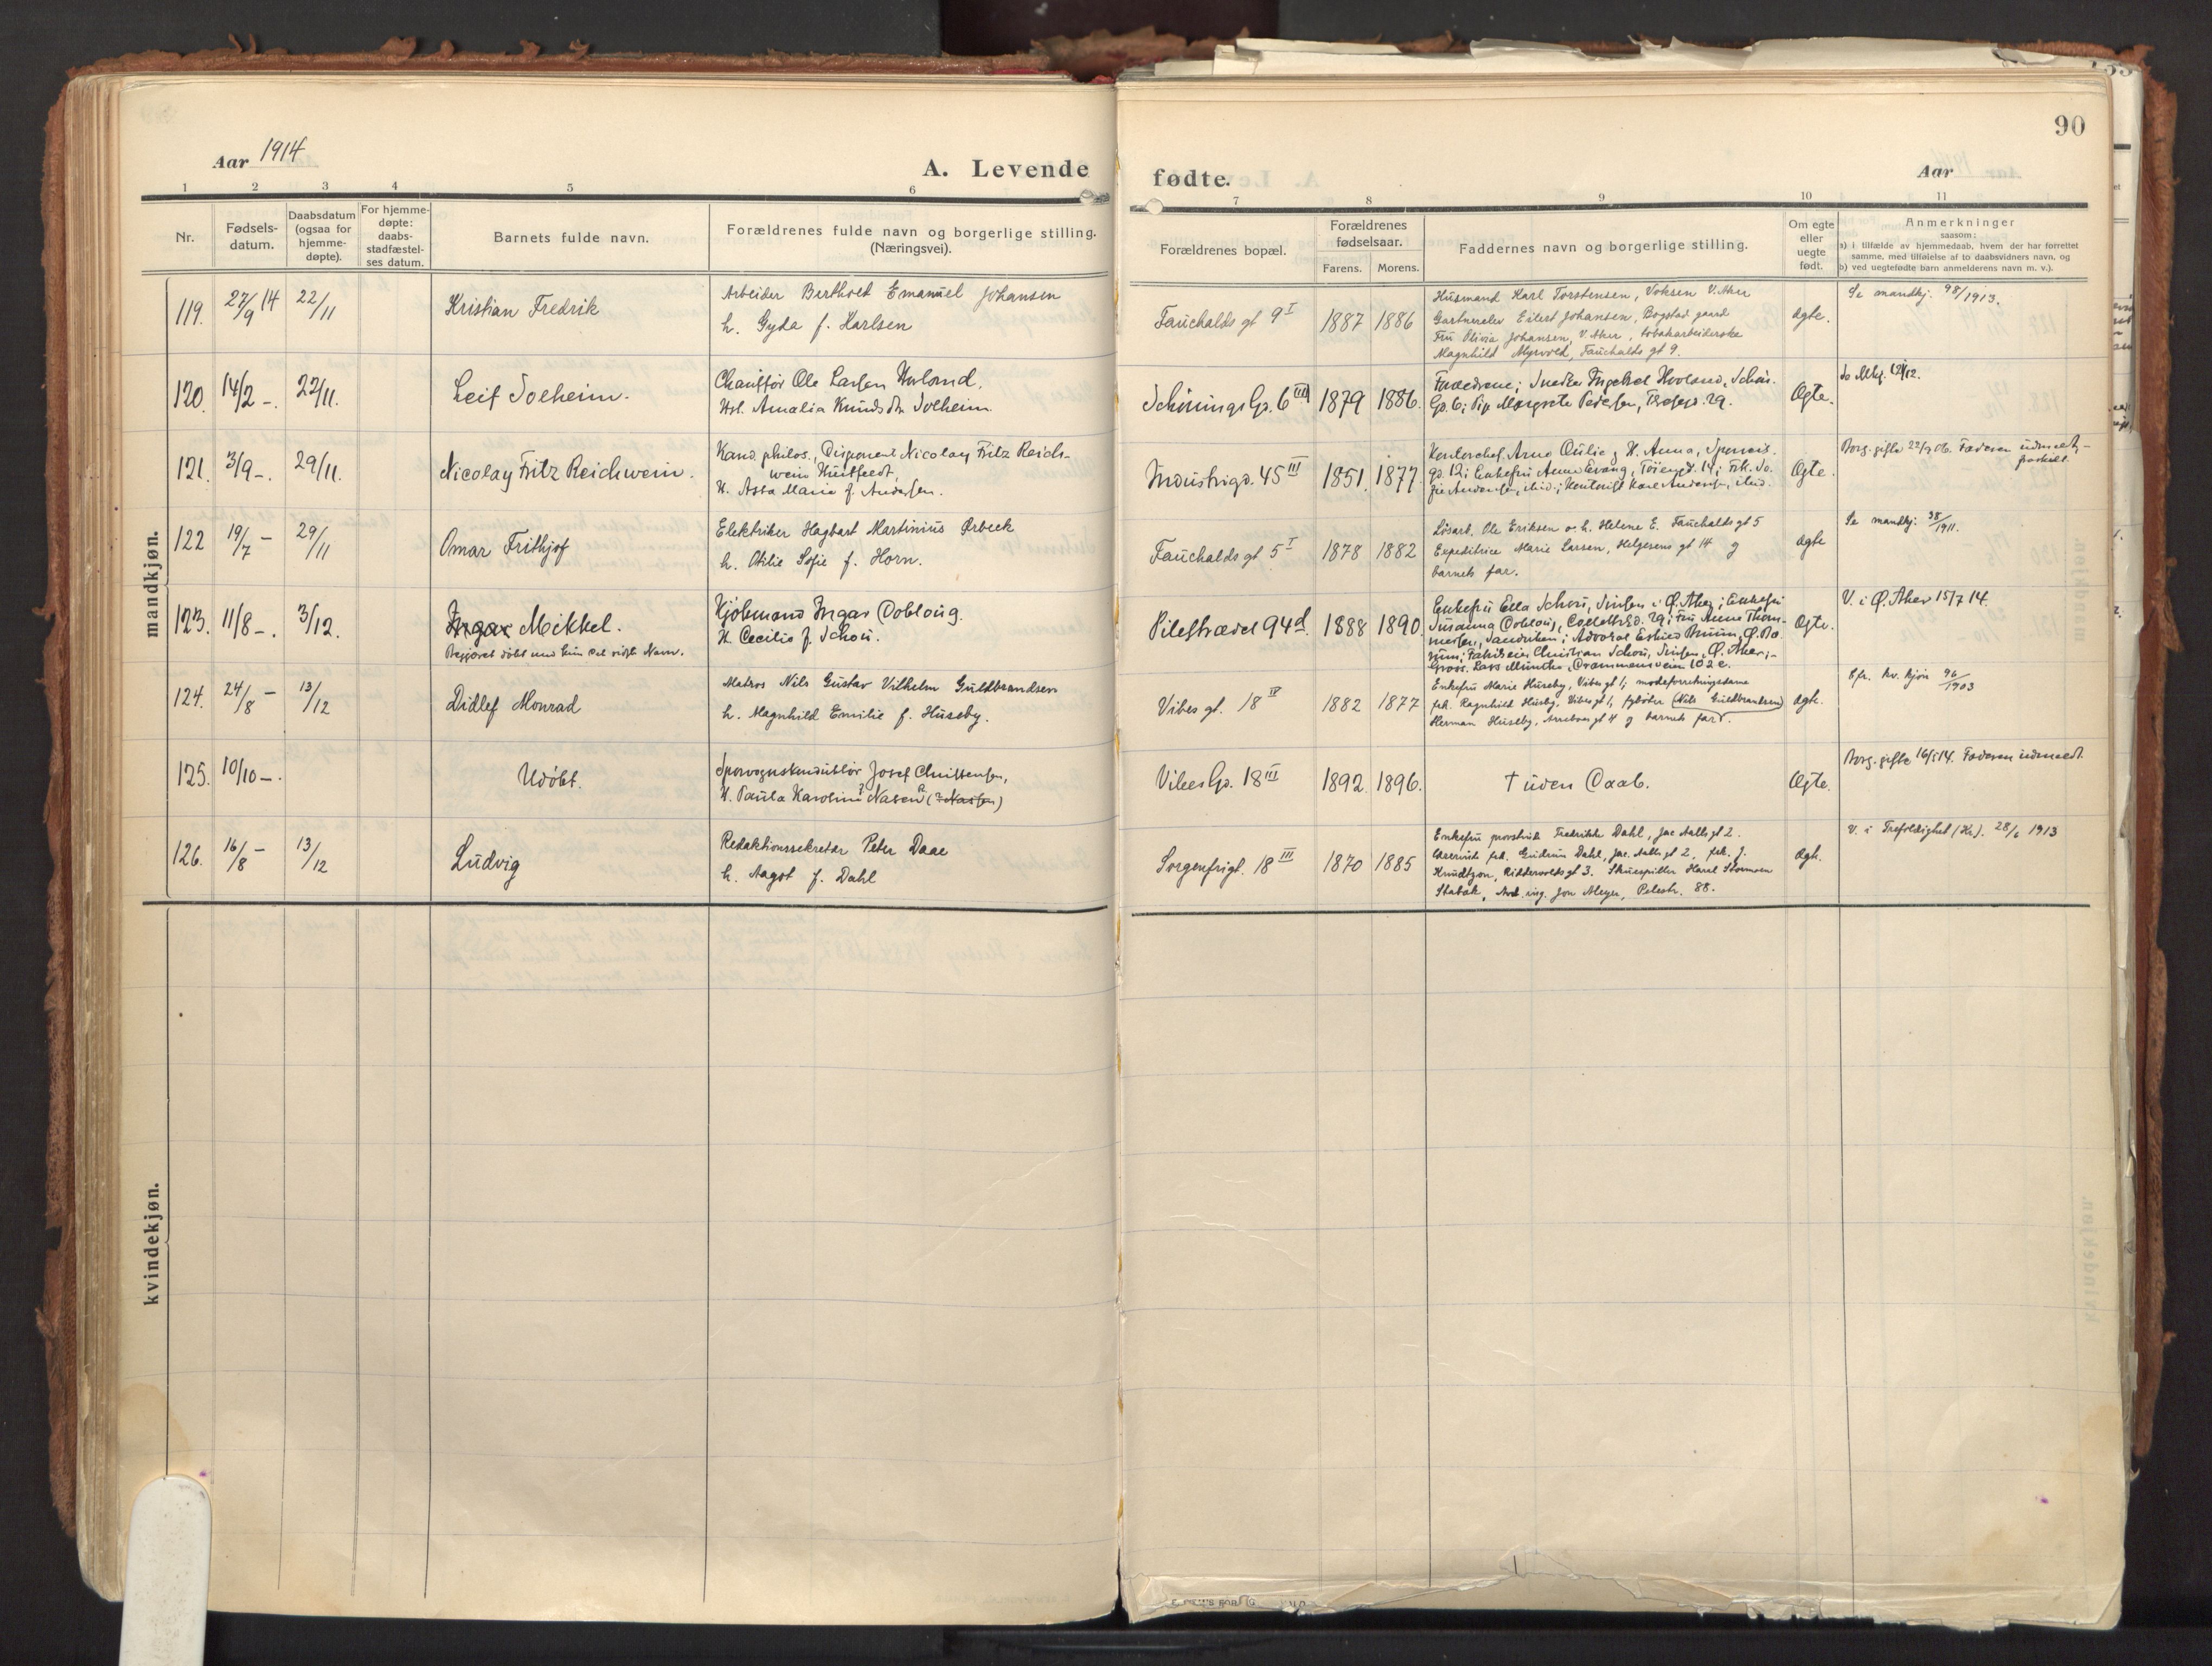 90
Aar 1914
A. Levende
fødte.
Aar
1 2 3 4 5 6
7 8 9 10 11
Nr.
Fødsels-
datum.
Daabsdatum
(ogsaa for
hjemme-
døpte).
For hjemme-
døpte:
daabs-
stadfæstel-
ses datum.
Barnets fulde navn.
Forældrenes fulde navn og borgerlige stilling.
(Næringsvei).
Forældrenes bopæl.
Forældrenes
fødselsaar.
Farens. Morens.
Faddernes navn og borgerlige stilling.
Om egte
eller
uegte
født.
Anmerkninger
saasom:
a) i tilfælde av hjemmedaab, hvem der har forrettet
samme, med tilføielse af to daabsvidners navn, og
b) ved uegtefødte barn anmelderens navn m. v.).
mandkjøn.
119. 27/9 14 22/11 Kristian Fredrik
Arbeider Berthold Emanuel Johansen
h. Gyda f. Karlsen
Fauchalds gt 9 I 1887 1886
Husmand Karl Torstensen, Voksen V. Aker
Gartnerelev Eilert Johansen, Bogstad gaard
Fru Olivia Johansen, V. Aker, tobakarbeiderske
Magnhild Myrvold, Fauchalds gt 9.
ægte.
Se mandkj. 98/1913.
120. 14/2 -. 22/11. Leif Solheim.
Chauffør Ole Larsen
Amalia Knudsdtr Solheim.
Schønings Gd. 6 III 1879 1886.
Forældrene; Ingebret Hovland, Schøn.
Gd. 6; Pige Margrete Pedersen,
Ægte.
121. 3/9 -. 29/11. Nicolay Fritz Reichwein.
Kand. philos., Disponent Nicolay Fritz Reich-
wein Huitfeldt,
H. Asta Marie f. Andersen.
Industrigd. 45 III 1851. 1877.
Kontorchef Arne Qulie og H. Anna,
gd. 12; Enkefru Anna Evang, Tøiengd. 14; Frk. So-
fie Andersen, ibid.; Kontorist Karl Andersen, ibid.
Ægte.
Borg. gifte 22/9 06. Faderen udmeldt
122 19/7 - 29/11 Omar Frithjof
Elektriker Hagbart Martinius Ørbeck
h. Otilie Sofie f. Horn.
Fauchalds gt 5 I 1878 1882
Løsarb. Ole Eriksen o. h. Helene E. Fauchalds gt 5
Expeditrice Marie Larsen, Helgesens gt 14 og
barnets far.
ægte
Se mandkj. 38/1911.
123. 11/8 -. 3/12. Ingar Mikkel.
Begjæret døbt med kun det sidste Navn.
Kjøbmand Ingar Dobloug.
H. Cecilie f. Schou.
Pilestrædet 94d. 1888 1890
Enkefru Ella Schou, Sinsen i Ø. Aker; Enkefru
Susanna Dobloug, 29; Fru Anna Thom-
Sandviken; Advocat Bruun, Ø. Bæ-
rum; Fabrikeier Christian Schou, Sinsen, Ø. Aker;
Gross. Lars Munthe, Drammensveien 102 c.
Ægte.
V. i Ø. Aker 15/7 14.
124. 24/8 - 13/12 Didlef Monrad
Matros Nils Gustav Vilhelm Guldbrandsen
h. Magnhild Emilie f. Huseby.
Vibes gt. 18 IV 1882 1877
Enkefru Marie Huseby, Vibes gt 1; modeforretningsdame
frk. Ragnhild Huseby, Vibes gt 1, fyrbøter (Nils Guldbrandsen)
Herman Huseby, gt 4 og barnets far.
ægte.
Cfr. kv. kjøn 96/1903
125. 10/10 -. Udøbt.
Sporvognskonduktør Josef Christensen,
H. Paula Karoline Nasen (? Nassen)
Vibes Gd. 18 III 1892. 1896.
† uden Daab.
Ægte.
Borg. gifte 16/5 14. Faderen udmeldt.
126. 16/8 - 13/12 Ludvig
Redaktionssekretær Peter Daae
h. Aagot f. Dahl
Sorgenfrigt. 18 III 1870 1885
Enkefru provstinde Fredrikke Dahl, Jac Aalls gt 2.
Lærerinde frk. Gudrun Dahl, Jac. Aalls gt 2, frk. J.
Knudtzon, Riddervolds gt 3. Skuespiller Harald Stormoen
Stabæk, Avd. ing. Jon Meyer, Pilestr. 88.
ægte.
V. i Trefoldighet (Kr). 28/6 1913
kvindekjøn.